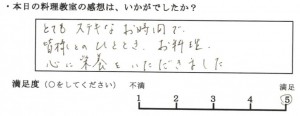 ・本日の料理教室の感想は、いかがでしたか?
とても ステキな お時間で、
皆様とのひととき、お料理、
心に栄養をいただきました
満足度(○をしてください) 不満 満足
1 2 3 4 5